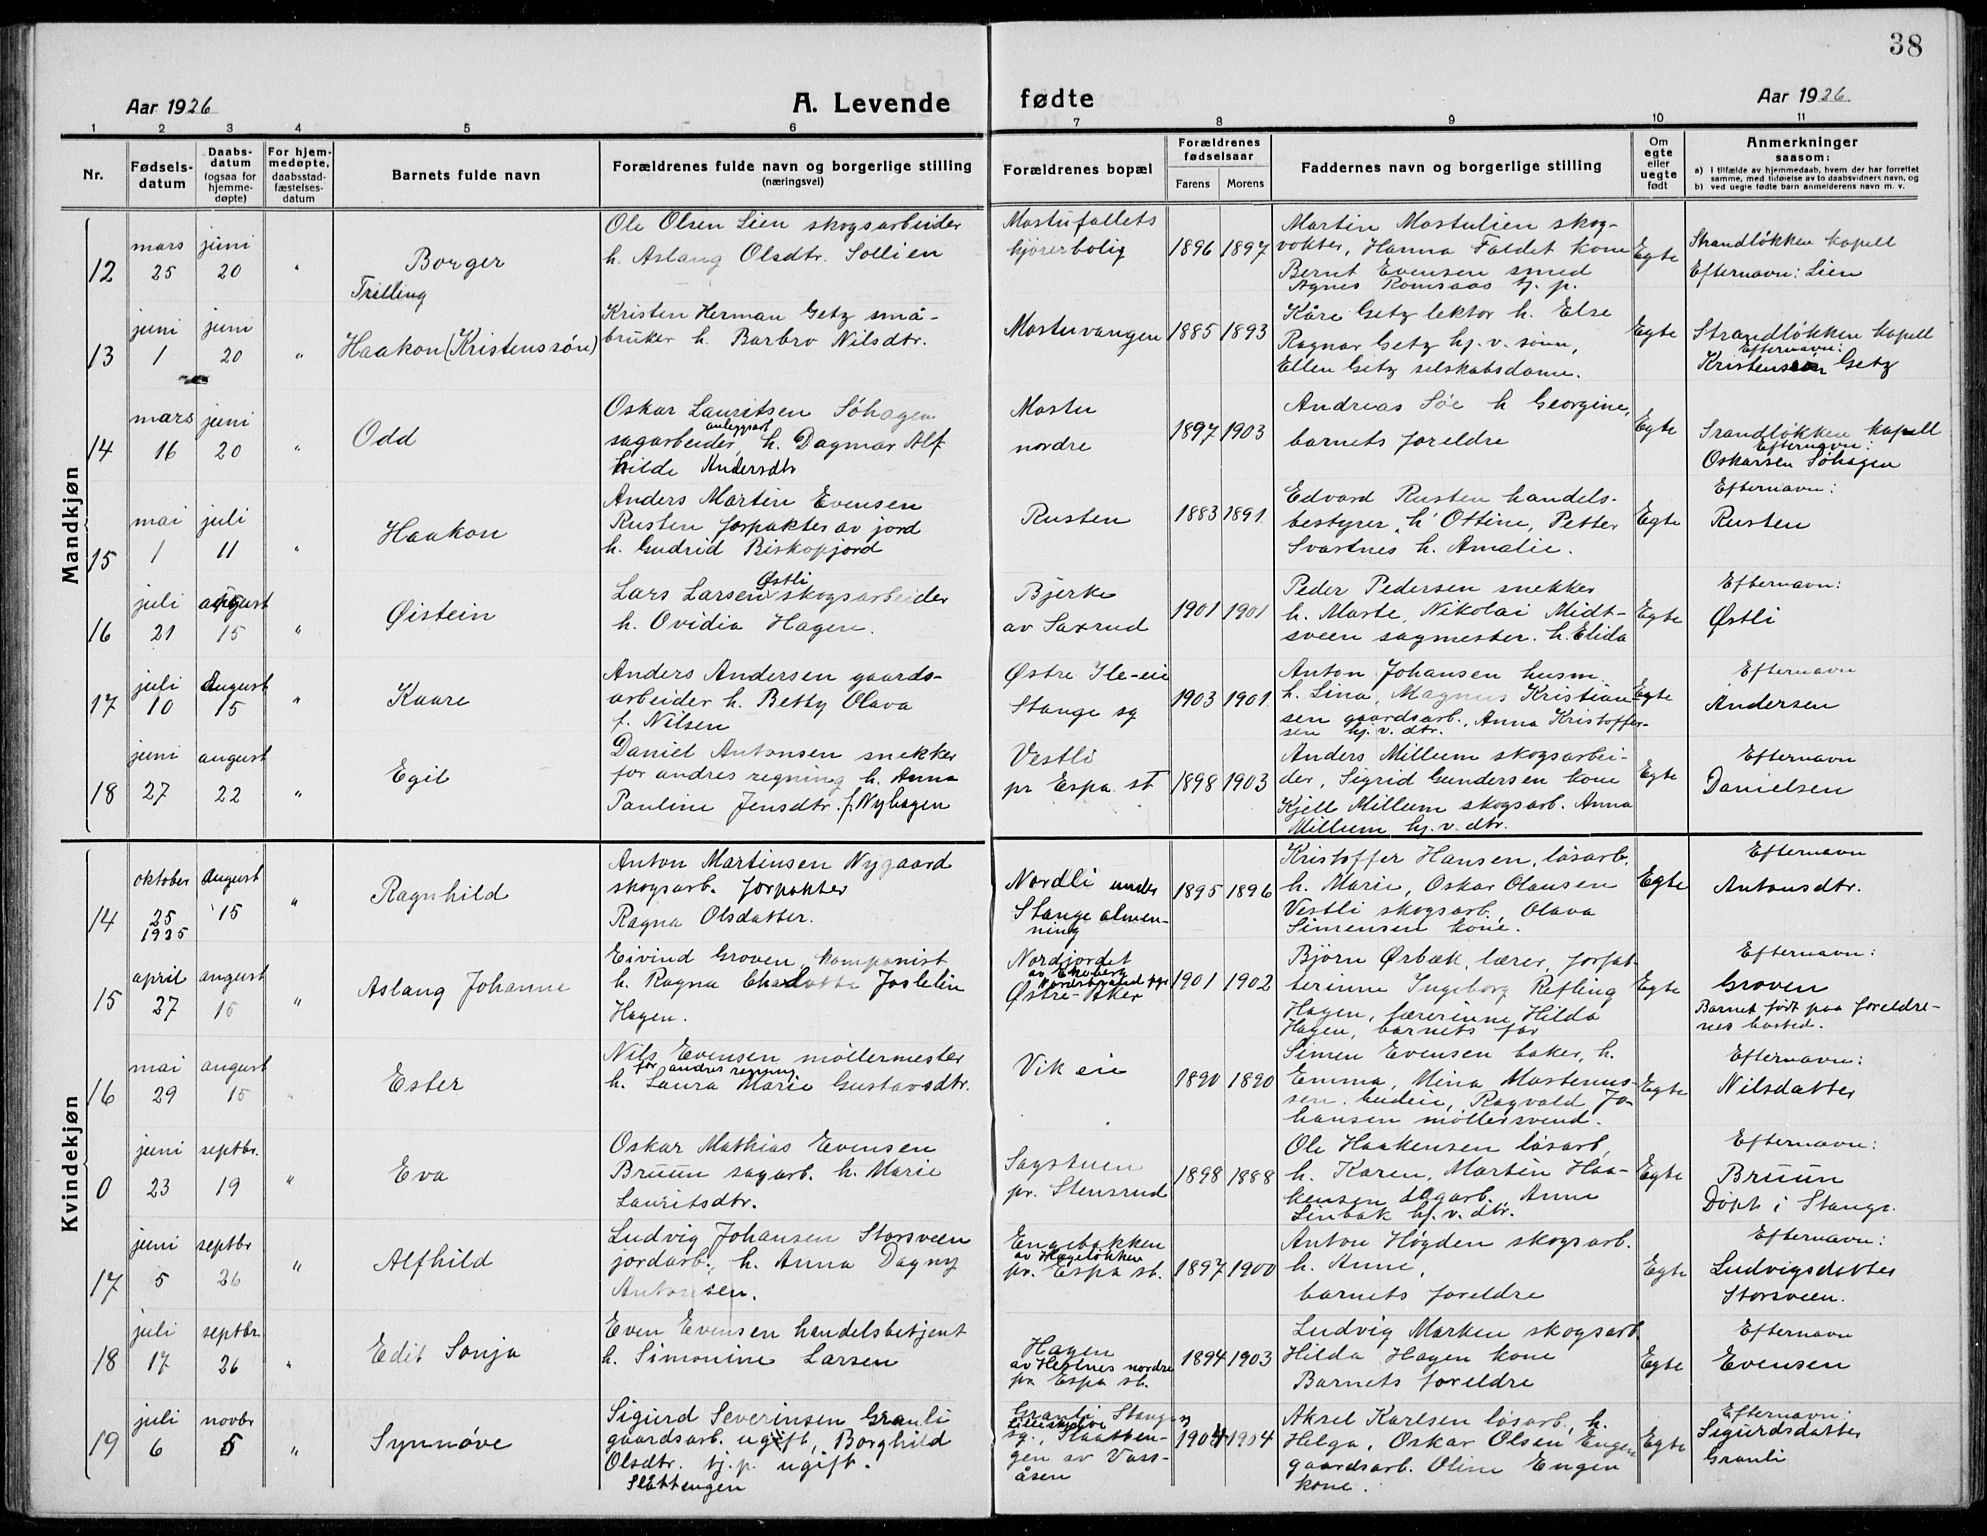 38
Aar 1926
A. Levende fødte
Aar 1926
1 2 3 4 5 6 7 8 9 10 11
Nr.
Fødsels-
datum
Daabs-
datum
(ogsaa for
hjemme-
døpte)
For hjem-
medøpte,
daabsstad-
fæstelses-
datum
Barnets fulde navn
Forældrenes fulde navn og borgerlige stilling
(næringsvei)
Forældrenes bopæl
Forældrenes
fødselsaar
Farens Morens
Faddernes navn og borgerlige stilling
Om
egte
eller
uegte
født
Anmerkninger
saasom:
a) I tilfælde av hjemmedaab, hvem der har forrettet
samme, med tilføielse av to daabsvidners navn, og
b) ved uegte fødte barn anmelderens navn m. v.
Mandkjøn
12
mars
25
juni
20
"
Borger
Trilling
Ole Olsen Lien skogsarbeider
h. Aslaug Olsdtr. Sollien
Mostufallets
kjørerbolig
1896 1897
Martin Mostulien skog-
vokter, Hanna Faldet kone
Bernt Evensen smed
Agnes Romsaas tj. p.
Egte
Strandløkken kapell
Efternavn: Lien
13
juni
1
juni
20
"
Haakon (Kristenssøn)
Kristen Herman Getz små-
bruker h. Barbro Nilsdtr.
Mostuvangen
1885 1893
Kåre Getz lektor h. Else
Ragnar Getz hj. v. sønn,
Ellen Getz selskabsdame.
Egte
Strandløkken kapell
Efternavn:
Kristenssøn Getz
14
mars
16
juni
20
"
Odd
Oskar Lauritsen Søhagen
anleggsarb
sagarbeider, h. Dagmar Alf-
hilde Andersdtr
Mostu
nordre
1897 1903
Andreas Søe h Georgine,
barnets foreldre
Egte
Srandløkken kapell
Efternavn:
Oskarsen Søhagen
15
mai
1
juli
11
"
Haakon
Anders Martin Evensen
Rusten forpakter av jord
h. Gudrid Biskopjord
Rusten
1883 1891.
Edvard Rusten handels-
bestyrer, h Ottine, Petter
Svartnes h. Amalie.
Egte
Efternavn:
Rusten
16
juli
21
august
15
"
Øistein
Østli
Lars Larsen skogsarbeider
h. Ovidia Hagen.
Bjerke
av Saxrud
1901 1901
Peder Pedersen snekker
h. Marte, Nikolai Midt-
sveen sagmester. h. Elida
Egte
Efternavn:
Østli
17
juli
10
August
15
"
Kaare
Anders Andersen gaards-
arbeider h. Betty Olava
f. Nilsen
Østre Ile-eie
Stange sg
1903 1901.
Anton Johansen husm.
h. Lina, Magnus Kristian-
sen gaardsarb., Anna Kristoffer-
sen hj. v. dtr.
Egte
Efternavn
Andersen
18
juni
27
august
22
"
Egil
Daniel Antonsen snekker
for andres regning h. Anna
Pauline Jensdtr. f. Nyhagen
Vestli
pr Espa st
1898 1903
Anders Millum skogsarbei-
der, Sigrid Gundersen kone
Kjell Millum skogsarb. Anna
Millum hj. v. dtr.
Egte
Efternavn
Danielsen
Kvindekjøn
14
oktober
25
1925
August
15
"
Ragnhild
Anton Martinsen Nygaard
skogsarb. forpakter
Ragna Olsdatter.
Nordli under
Stange almen-
ning
1895 1896
Kristoffer Hansen, løsarb.
h. Marie, Oskar Olausen
Vestli skogsarb., Olava
Simensen kone.
Egte
Efternavn
Antonsdtr.
15
april
27
august
15
"
Aslaug Johanne
Eivind Groven, komponist
h. Ragna Charlotte Joslelin
Hagen.
Nordjordet
av Ekeberg
Nordstrand pgr
Østre-Aker
1901 1902
Bjørn Ørbæk, lærer, forfat-
terinne Ingeborg Refling
Hagen, lærerinne Hilda
Hagen, barnets far
Egte
Efternavn:
Groven
Barnet født paa foreldre-
nes bosted.
16
mai
29
august
15
"
Ester
Nils Evensen møllermester
for andres regning
h. Laura Marie Gustavsdtr.
Vik eie
1890 1890
Simen Evensen baker, h.
Emma, Mina Martinus-
sen budeie, Ragvald Jo-
hansen møllersvend.
Egte
Efternavn:
Nilsdatter
0
juni
23
septbr.
19
"
Eva
Oskar Mathias Evensen
Bruun sagarb. h. Marie
Lauritsdtr.
Sagstuen
pr. Stensrud
1898 1888
Ole Haakensen løsarb,
h. Karen, Martin Haa-
kensen dagarb. Anne
Linbak hj. v. dtr.
Egte
Efternavn:
Bruun
Døpt i Stange.
17
juni
5
septbr
26
"
Alfhild
Ludvig Johansen Storsveen
jordarb., h. Anna Dagny
Antonsen.
Engebakken
av Hageløkken
pr. Espa st.
1897 1900
Anton Høgden skogsarb.
h. Anne,
barnets foreldre
Egte
Efternavn:
Ludvigsdatter
Storsveen.
18
juli
17
septbr.
26
"
Edit Sonja
Even Evensen handelsbetjent
h. Simonine Larsen
Hagen
av Hestnes nordre
pr Espa st.
1894 1903
Ludvig Marken skogsarb.
Hilda Hagen kone
Barnets foreldre
Egte
Efternavn
Evensen
19
juli
6
novbr
5
"
Synnøve
Sigurd Severinsen Granli
gaardsarb. ugift, Borghild
Olsdtr. tj. p. ugift.
Slåttengen
Granli Stange
sg., Slaatten-
gen av Vass-
åsen
1904 1904
Aksel Karlsen løsarb., h.
Helga, Oskar Olsen Engen
gaardsarb. Oline Engen
kone.
Egte
Efternavn:
Sigurdsdatter
Granli